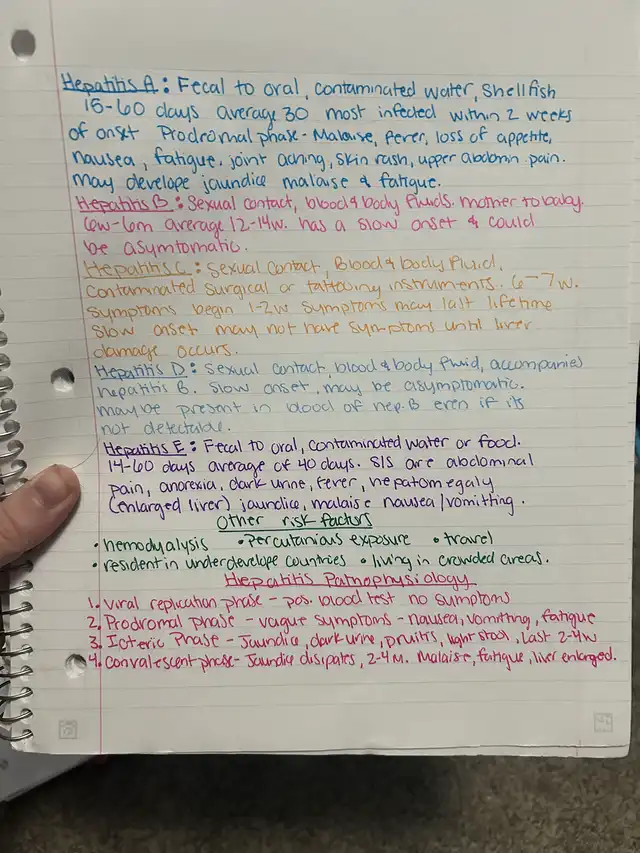 Hepatitis A: Fecal to oral, contaminated water, Shellfish
15-60 days average 30 most infected within 2 weeks
of onset Prodromal phase - Malaise, fever, loss of appetite,
nausea, fatigue, joint aching, skin rash, upper abdomn pain.
may develope jaundice malaise & fatigue.
Hepatitis B: Sexual contact, blood & body fluids. mother to baby.
6w-6m average 12-14w. has a slow onset & could
be asymtomatic.
Hepatitis C: Sexual Contact, Blood & body fluid,
contaminated surgical or tattooing instruments. 6-7w.
symptoms begin 1-2w symptoms may lalt lifetime
slow onset may not have symptoms until liver
damage occurs.
Hepatitis D: Sexual contact, blood & body fluid, accompanies
hepatitis B. Slow onset, may be asymptomatic.
may be present in blood of hep. B even if its
not detectable.
Hepatitis E: Fecal to oral, contaminated water or food.
14-60 days average of 40 days. S/S are abdominal
pain, anorexia, dark urine, fever, hepatomegaly
(enlarged liver) jaundice, malaise nausea/vomitting.
Other risk factors
• hemodyalysis • Percutanious exposure • travel
• resident in underdevelope countries • living in crowded areas.
Hepatitis Pathophysiology
1. Viral replication phase - pos. blood test no symptoms
2. Prodromal phase - vague symptoms - nausea, vomitting, fatigue
3. Icteric Phase - Jaundice, dark urine, pruitis, light stool, last 2-4w
4. Convalescent phase - Jaundice disipates, 2-4 M. Malaise, fatigue, liver enlarged.